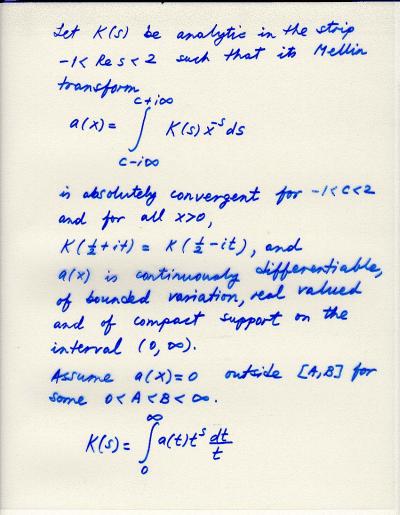 Let K(s) be analytic in the strip
-1 < Re s < 2 such that its Mellin
transform
a(x) = ∫_{c-i∞}^{c+i∞} K(s) x^{-s} ds
is absolutely convergent for -1 < c < 2
and for all x > 0,
K(½ + it) = K(½ - it), and
a(x) is continuously differentiable,
of bounded variation, real valued
and of compact support on the
interval (0, ∞).
Assume a(x) = 0 outside [A, B] for
some 0 < A < B < ∞.
K(s) = ∫_0^∞ a(t) t^s dt/t